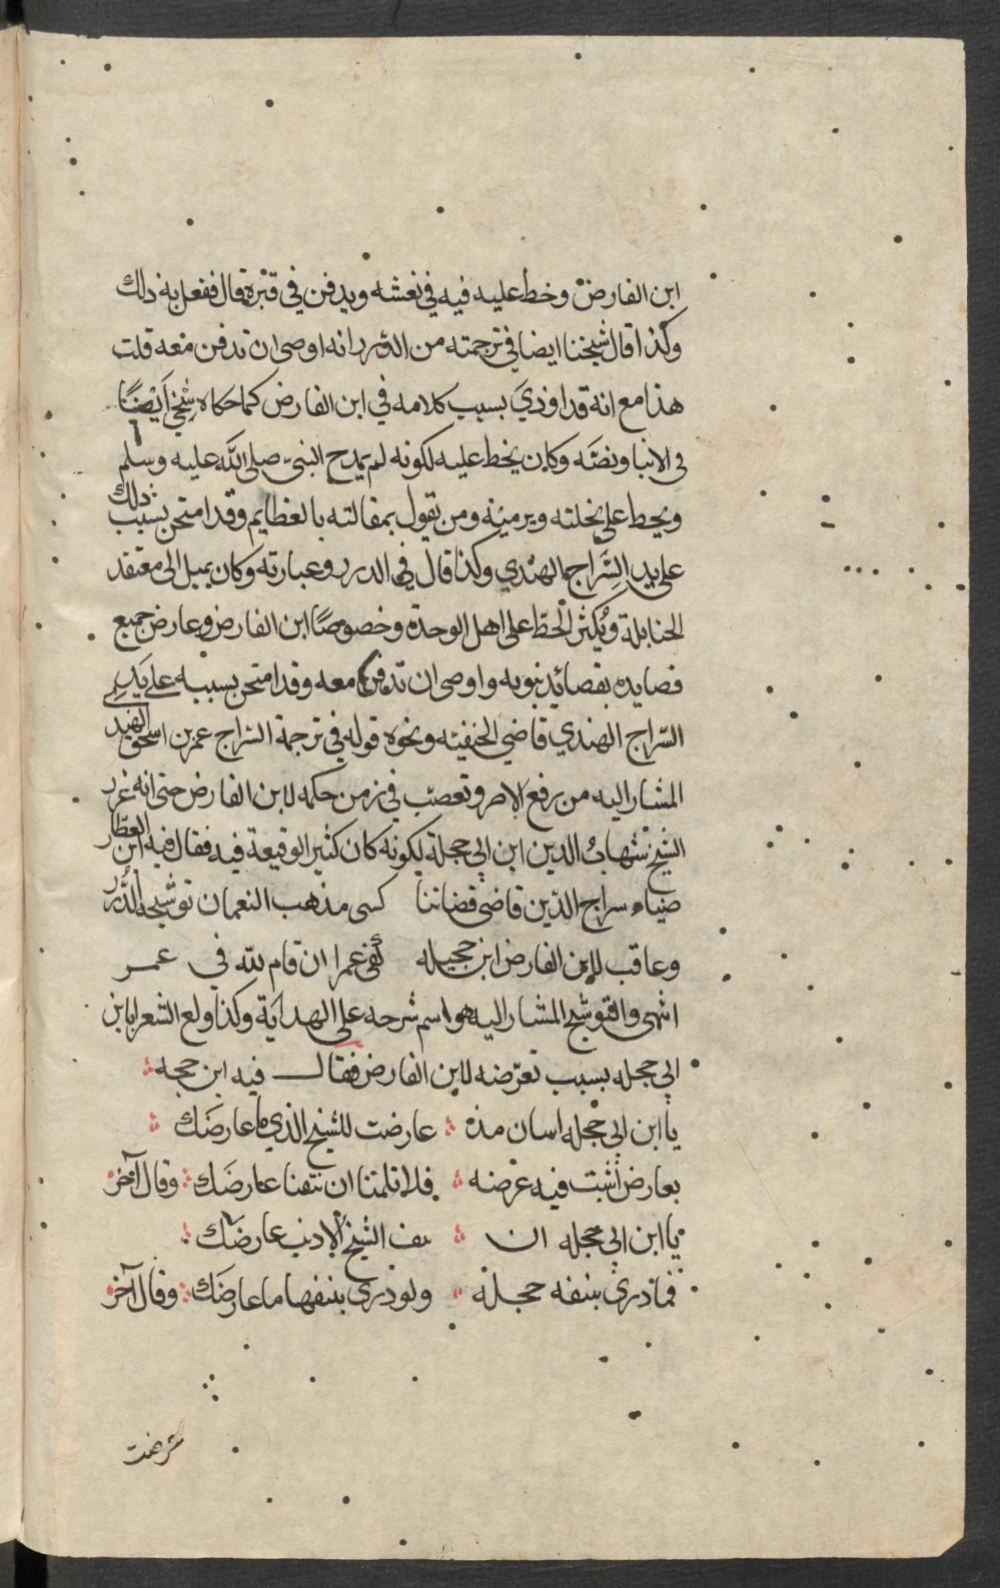 ابن الفارض وخط عليه فيه في نعشه ويدفن في قبره قال ففعل به ذلك
وكذا قال شيخنا ايضا في ترجمته من الدرر انه اوصى ان تدفن معه قلت
هذا مع انه قد اوذي بسبب كلامه في ابن الفارض كما حكاه شيخي ايضًا
في الانبا ونصّه وكان يحط عليه لكونه لم يمدح النبي صلى الله عليه وسلم
ويحط على نحلته ويرميه ومن يقول بمقالته بالعظايم وقد امتحن بسبب ذلك
على يد السّراج الهندي وكذا قال في الدرر وعبارته وكان يميل الى معتقد
الحنابلة ويُكثر الحطّ على اهل الوحدة وخصوصًا ابن الفارض وعارض جميع
قصايده بقصائد نبويه واوصى ان تدفن معه وقد امتحن بسببه على يد
السّراج الهندي قاضي الحنفيّه ونحوه قوله في ترجمة السّراج عمر بن اسحق الهندي
المشار اليه من رفع الاصر وتعصّب في زمن حكمه لابن الفارض حتى انه عزر
الشيخ شهاب الدين ابن ابي حجلة لكونه كان كثير الوقيعة فيه فقال فيه ابن العطار
ضياء سراج الدّين قاضي قضاتنا كسى مذهب النعمان توشيحه الدّرر
وعاقب لابن الفارض ابن حجيله كفى عمرا ان قام لله في عمر
انتهى والتوشيح المشار اليه هو اسم شرحه على الهداية وكذا ولع الشعرا بابن
ابي حجله بسبب تعرّضه لابن الفارض فقال فيه ابن حجه
يا ابن ابي حجله اسان مذ عارضت للشيخ الذي ما عارضك
بعارض انبت فيه عرضه فلا تلمنا ان نتفنا عارضك وقال آخر
يا ابن ابي حجله ان نتف الشيخ الاديب عارضك
فما درى بنتفه حجلة ولو درى بنتفها ما عارضك وقال آخر